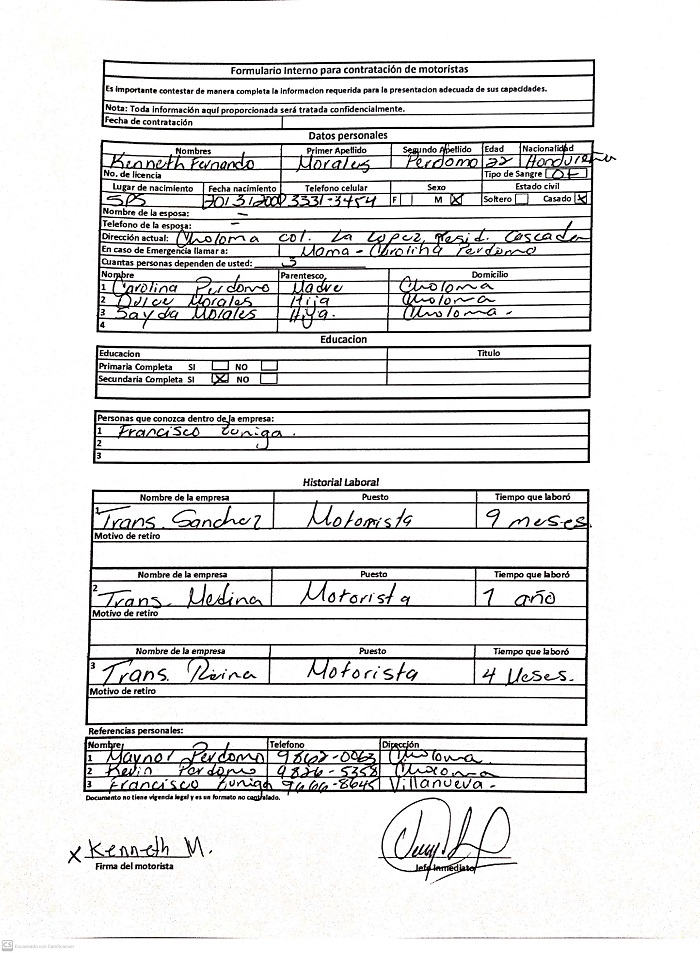 Formulario Interno para contratación de motoristas
Es importante contestar de manera completa la informacion requerida para la presentacion adecuada de sus capacidades.
Nota: Toda información aquí proporcionada será tratada confidencialmente.
Fecha de contratación
Datos personales
Nombres Primer Apellido Segundo Apellido Edad Nacionalidad
Kenneth Fernando Morales Perdomo 22 Hondureña
No. de licencia Tipo de Sangre O+
Lugar de nacimiento Fecha nacimiento Telefono celular Sexo Estado civil
SPS 3331-3454 F M X Soltero Casado X
Nombre de la esposa: -
Telefono de la esposa: -
Dirección actual: Choloma col. La Lopez, Resid. Cascada
En caso de Emergencia llamar a: Mama - Carolina Perdomo
Cuantas personas dependen de usted: 3
Nombre Parentesco, Domicilio
1 Carolina Perdomo Madre Choloma
2 Dulce Morales Hija Choloma
3 Sayda Morales Hija. Choloma -
4
Educacion
Educacion Titulo
Primaria Completa SI NO
Secundaria Completa SI X NO
Personas que conozca dentro de la empresa:
1 Francisco Zuniga.
2
3
Historial Laboral
Nombre de la empresa Puesto Tiempo que laboró
1 Trans. Sanchez Motorista 9 meses.
Motivo de retiro
Nombre de la empresa Puesto Tiempo que laboró
2 Trans. Medina Motorista 1 año
Motivo de retiro
Nombre de la empresa Puesto Tiempo que laboró
3 Trans. Reina Motorista 4 Meses.
Motivo de retiro
Referencias personales:
Nombre Telefono Dirección
1 Maynor Perdomo 9862-0063 Choloma
2 Kevin Perdomo 9826-5358 Choloma
3 Francisco Zuniga 9666-8645 Villanueva -
Documento no tiene vigencia legal y es un formato no controlado.
x Kenneth M.
Firma del motorista Jefe Inmediato
CS Escaneado con CamScanner